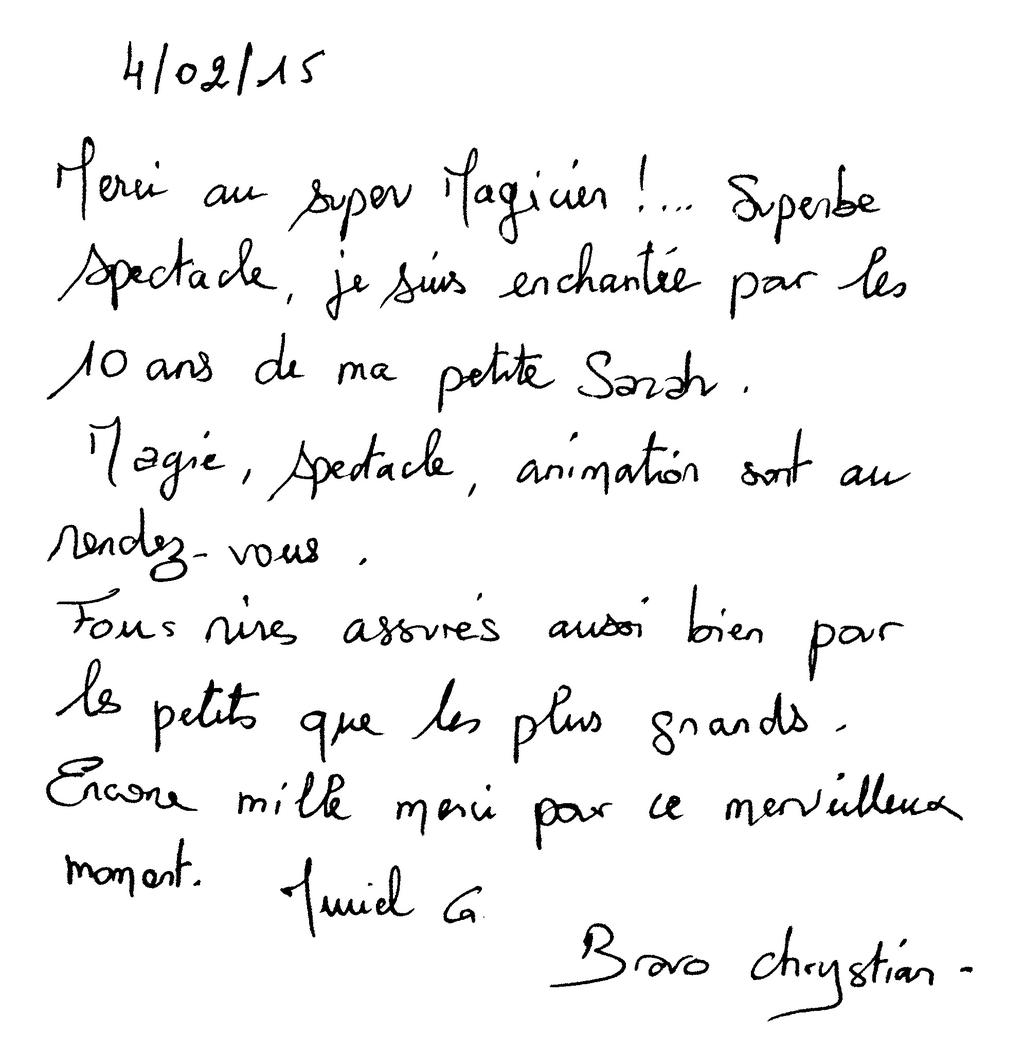 4/02/15
Merci au super Magicien !... Superbe
spectacle, je suis enchantée par les
10 ans de ma petite Sarah.
Magie, spectacle, animation sont au
rendez-vous.
Fous rires assurés aussi bien pour
les petits que les plus grands.
Encore mille merci pour ce merveilleux
moment.
Muriel G
Bravo Chrystian -